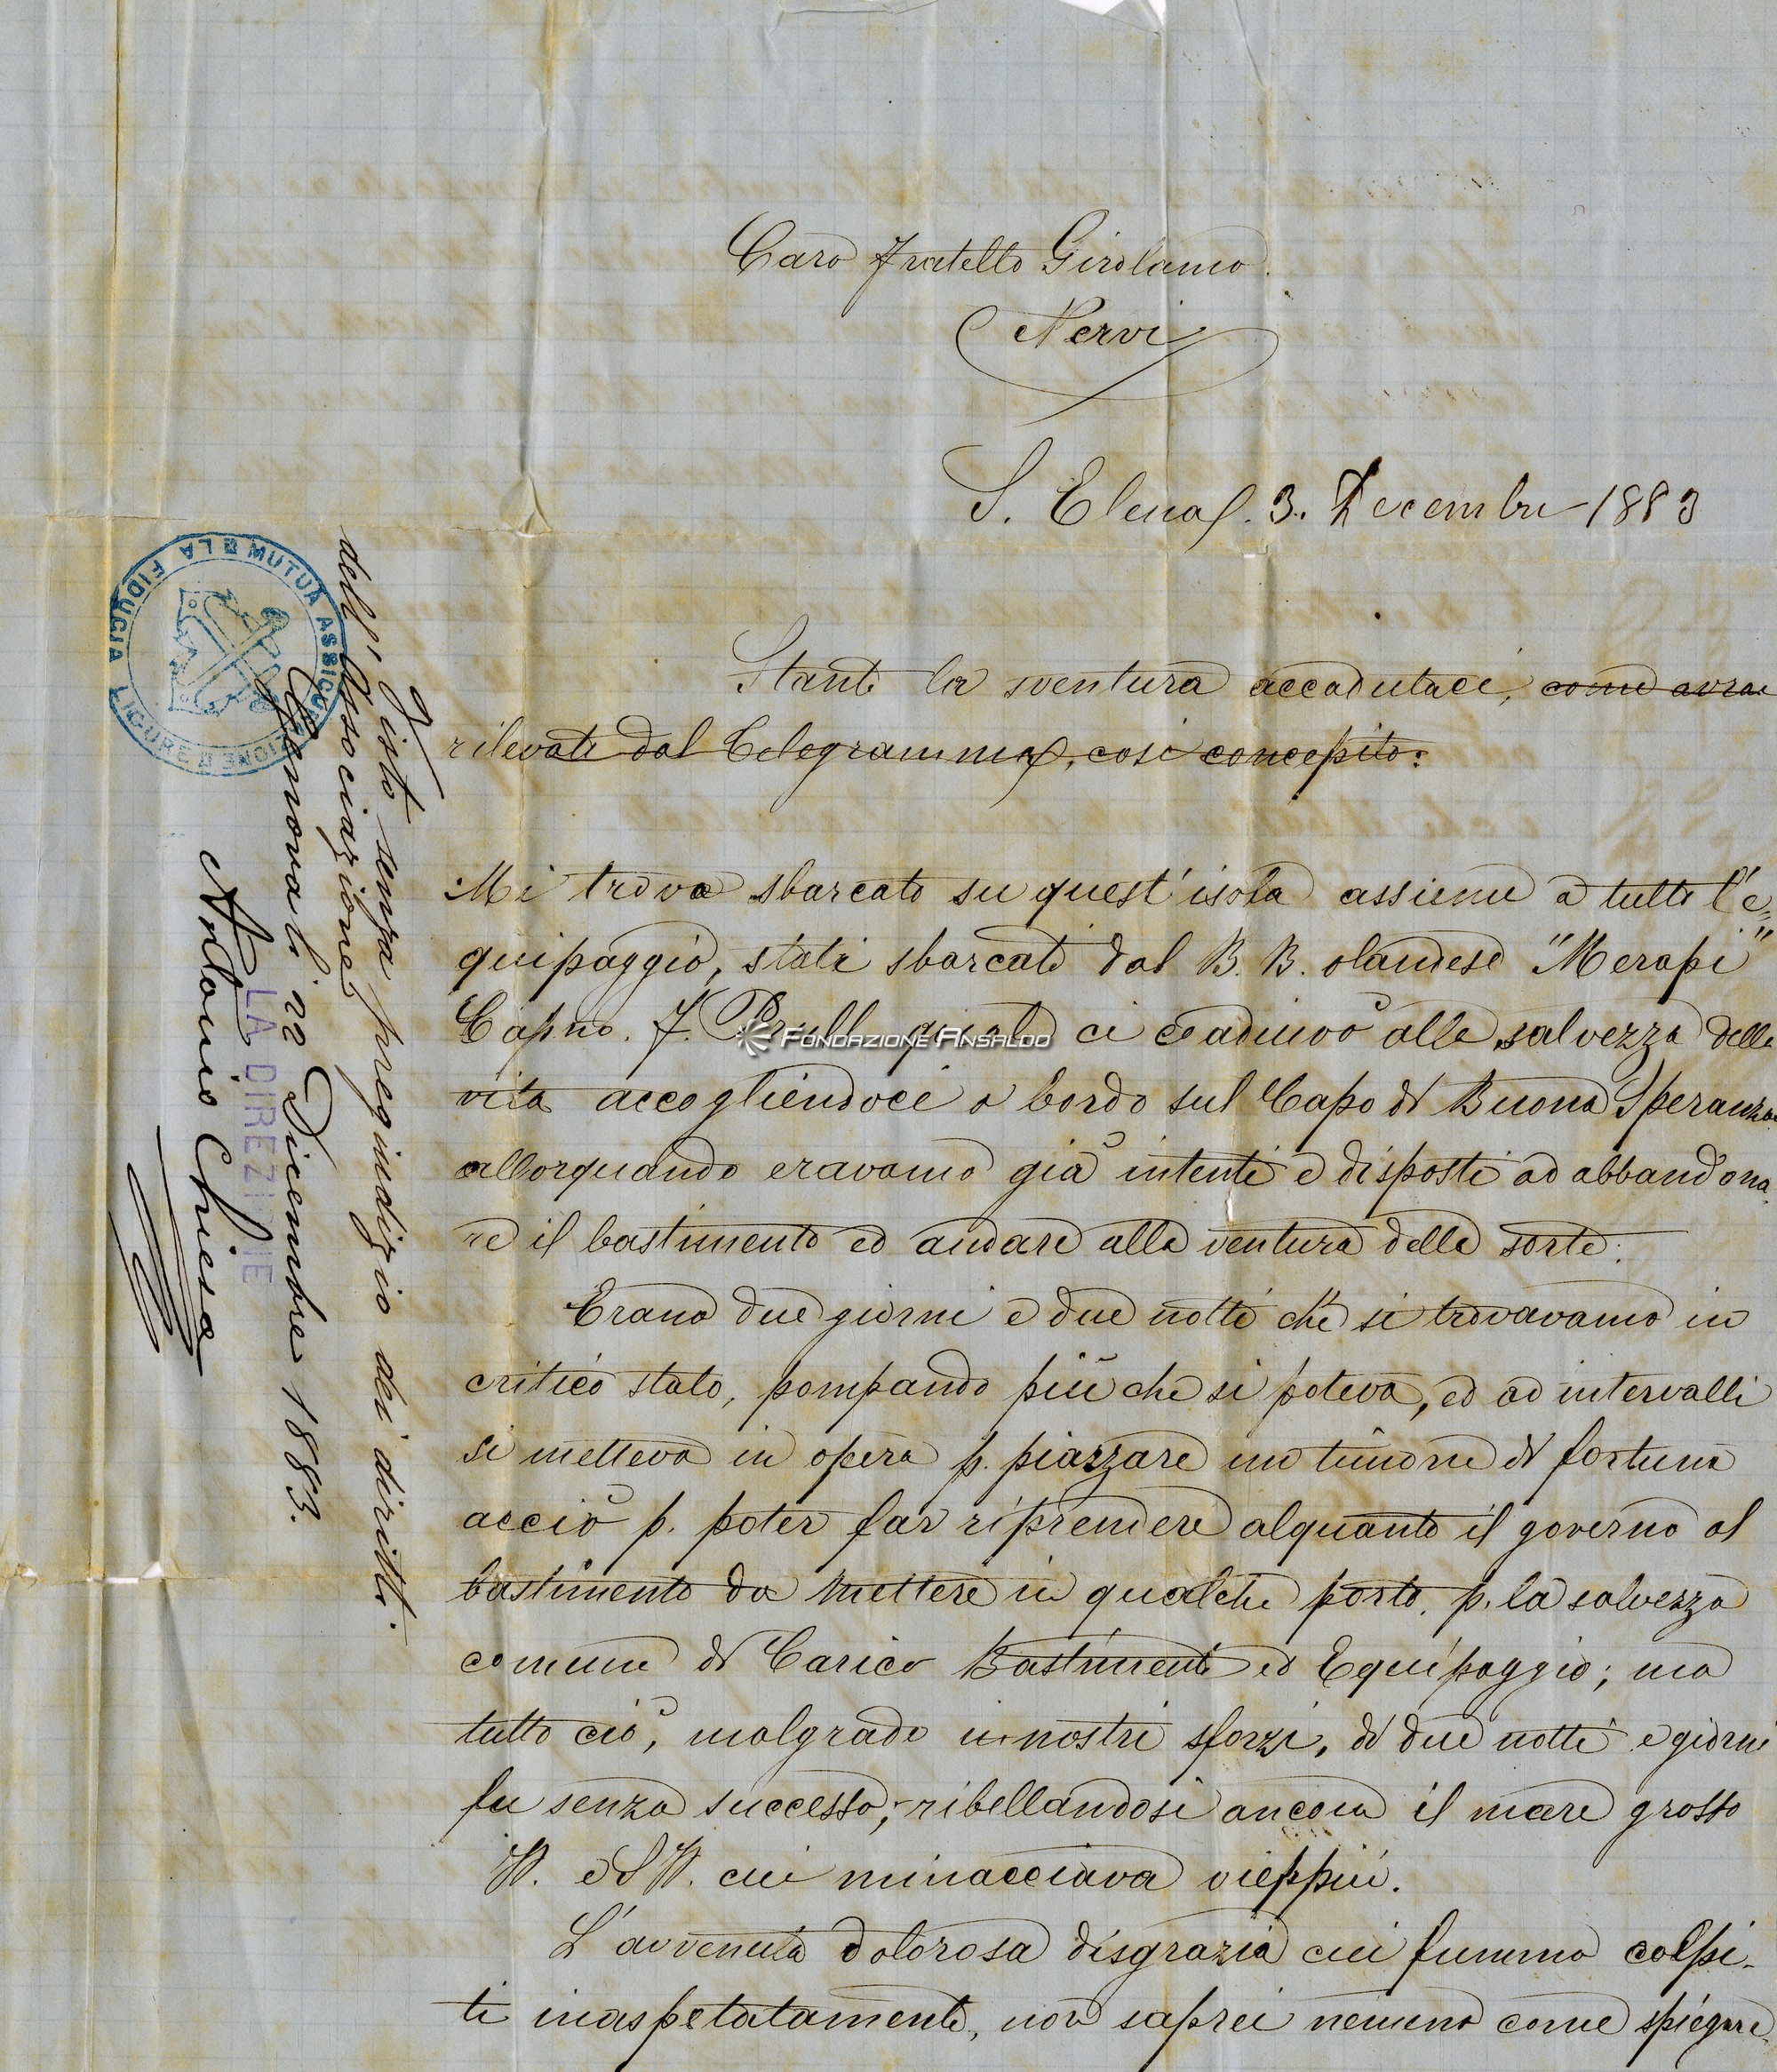 Caro Fratello Girolamo.
Nervi
S. Elena. 3. Decembre 1883
Stante la sventura accadutaci, come avrai
rilevato dal Telegramma, così concepito:
Mi trovo sbarcato su quest'isola assieme a tutto l'e=
quipaggio, stati sbarcati dal B. B. olandese "Merapi"
Capno. J. Prull quale ci coadiuvò alla salvezza della
vita accogliendoci a bordo sul Capo di Buona Speranza
allorquando eravamo già intenti e disposti ad abbandona
re il bastimento ed andare alla ventura della sorte.
Erano due giorni e due notti che si trovavamo in
critico stato, pompando più che si poteva, ed ad intervalli
si metteva in opera p. piazzare un timone di fortuna
acciò p. poter far riprendere alquanto il governo al
bastimento da mettere in qualche porto. p. la salvezza
comune di Carico Bastimento ed Equipaggio; ma
tutto ciò, malgrado i nostri sforzi, di due notti e giorni
fu senza successo; ribellandosi ancora il mare grosso
W. e SW. cui minacciava vieppiù.
L'avvenuta dolorosa disgrazia cui fummo colpi-
ti inaspetatamente, non saprei nemeno come spiegare
Visto senza pregiudizio dei diritti
dell'Associazione
Genova li 22 Dicembre 1883.
LA DIREZIONE
Antonio Chiesa
MUTUA ASSICURAZIONE LIGURE LA FIDUCIA
FONDAZIONE ANSALDO